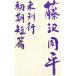 藤沢周平
未刊行
初期短篇